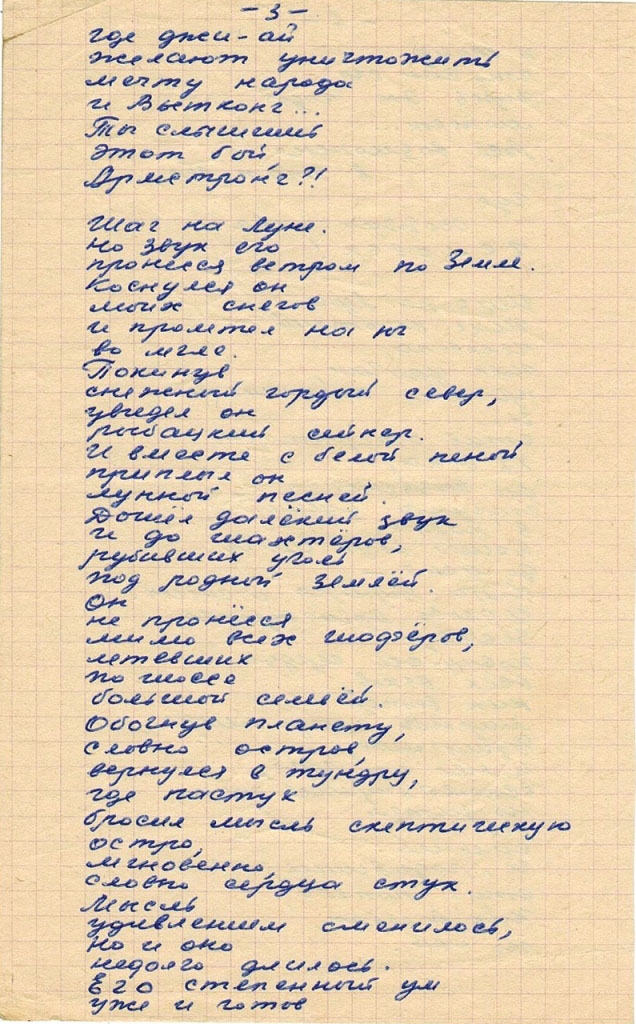 - 3 -
где джи-ай
желают уничтожить
мечту народа
и Вьетконг...
Ты слышишь
этот бой,
Армстронг?!
Шаг на Луне.
Но звук его
пронёсся ветром по Земле.
Коснулся он
моих снегов
и промчался на юг
во мгле.
Покинув
снежный гордый север,
увидел он
рыбацкий сейнер.
И вместе с белой пеной
приплыл он
лунной песней.
Дошёл далёкий звук
и до шахтёров,
рубивших уголь
под родной землёй.
Он
не пронёсся
мимо всех шофёров,
летевших
по шоссе
большой семьёй.
Обогнув планету,
словно остров,
вернулся в тундру,
где пастух
бросил мысль скептическую
остро,
мгновенно,
словно сердца стук.
Мысль
удивлением сменилось,
но и оно
недолго длилось.
Его степенный ум
уже и готов